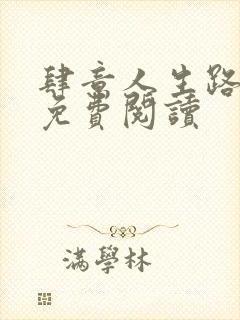 肆意人生路
免費閱讀
滿學林